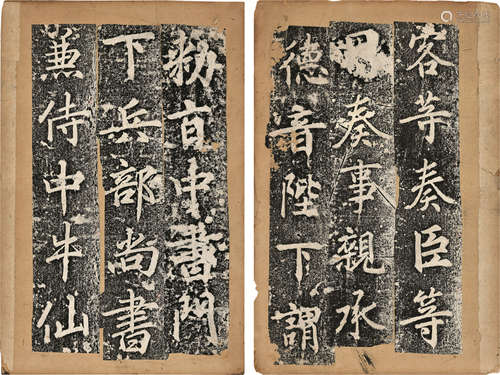 勑中書門
下兵部尚書
兼侍中牛仙
客等奏臣等
奏事親承
德音陛下謂